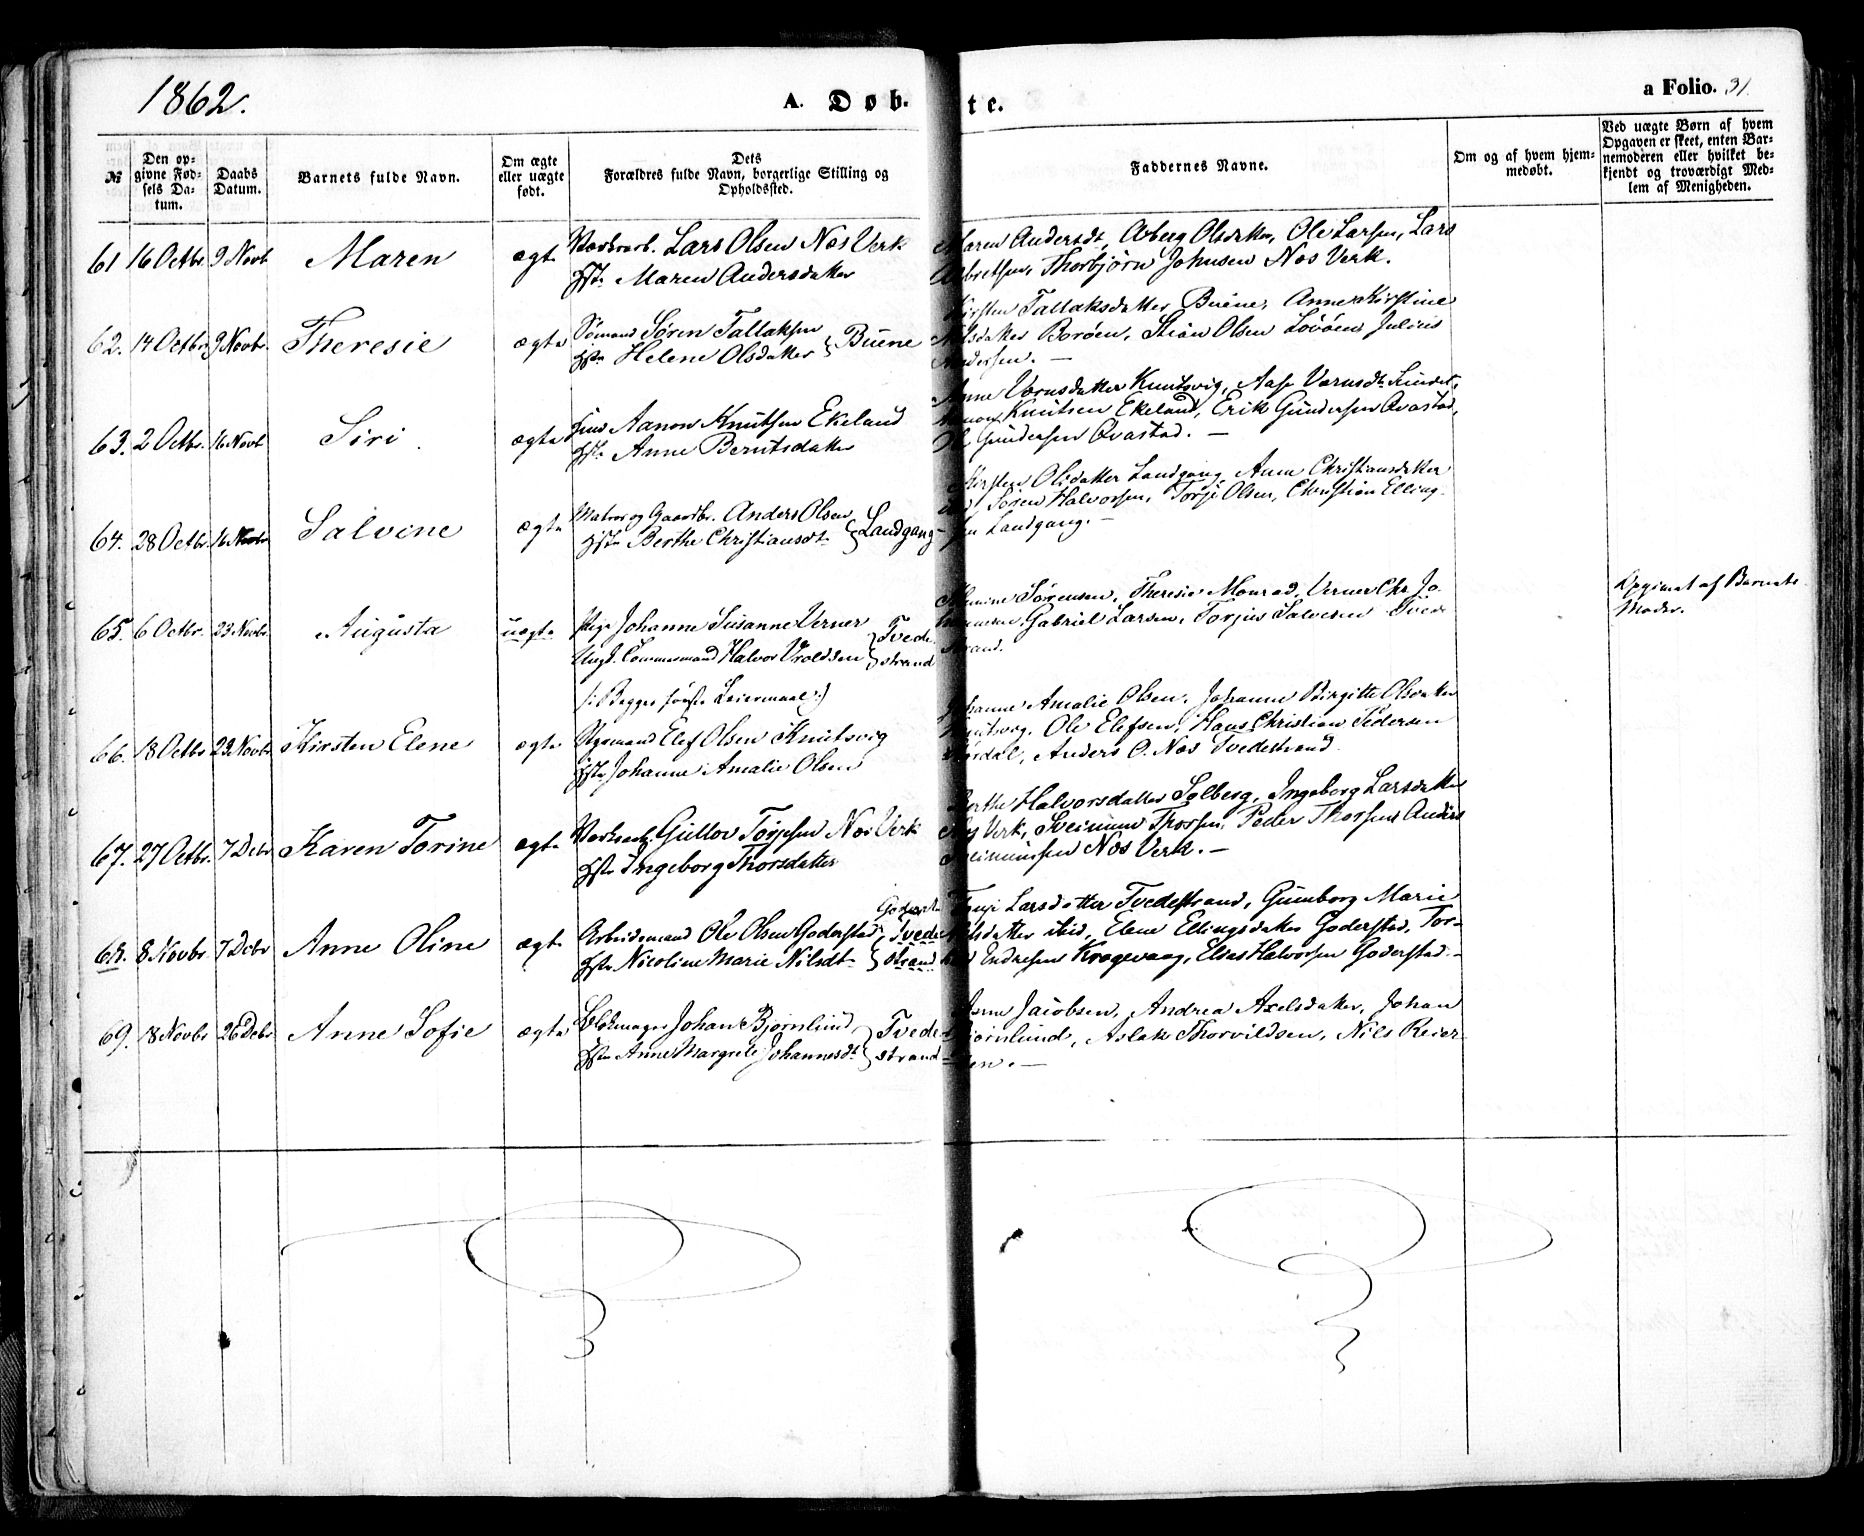 1862.
A. Døb- te.
a Folio. 31
№
Den op-
givne Fød-
sels Da-
tum.
Daabs
Datum.
Barnets fulde Navn.
Om ægte
eller uægte
født.
Dets
Forældres fulde Navn, borgerlige Stilling og
Opholdssted.
Faddernes Navne.
Om og af hvem hjem-
medøbt.
Ved uægte Børn af hvem
Opgaven er skeet, enten Bar-
nemoderen eller hvilket be-
kjendt og troværdigt Med-
lem af Menigheden.
61 16 Octbr 9 Novb Maren ægte Værksarb. Lars Olsen Næs Verk
Hst. Maren Andersdatter
Maren Andersdt, Olsdatter, Ole Larsen, Lars
Thorbjørn Johnsen Næs Verk.
62. 14 Octbr 9 Novbr. Theresie ægte Sømand Søren Tallaksen
Hst. Helene Olsdatter } Buene
Kirsten Tallaksdatter Buene, Anne Kirstine
Nilsdatter Borøen, Stian Olsen Løvøen Julius
Andersen. —
63. 2 Octbr. 16 Novb Siri. ægte Aanon Knutsen Ekeland
Hst. Anne Berntsdatter
Anne Knutsvig, Aase
Aanon Knutsen Ekeland, Erik Gundersen Qvastad,
Gundersen Qvastad. —
64. 28 Octbr. 16 Novbr Salvine ægte Matros og Gaardbr. Anders Olsen
Hst. Berthe Christiansdt } Landgang
Kirsten Olsdatter Landgang, Anne Christiansdatter
Søren Halvorsen, Terje Olsen, Christian Elling-
sen Landgang. —
65. 6 Octbr. 23 Novbr. Augusta uægte Pige Johanne Susanne Verner
Ungk. Halvor Vroldsen } Tvede-
strand
/: Begges første Leiermaal :/
Sørensen, Theresie Monrad, Verner Chr. Jo-
hannesen Gabriel Larsen, Torjus Salvesen Tvede
strand.
Opgivet af Barnets
Moder.
66. 18 Octbr 23 Novbr Kirsten Elene ægte Elef Olsen Knutsvig
Hst. Johanne Amalie Olsen
Johanne Amalie Olsen, Johanne Birgitte Olsdatter
Knutsvig, Ole Elefsen, Hans Christian Pedersen
Anders O. Næs Tvedestrand.
67. 27 Octbr. 7 Debr Karen Torine ægte Værksarb. Gullov Torjesen Næs Verk
Hst. Ingeborg Thorsdatter
Berthe Halvorsdatter Solberg, Ingeborg Larsdatter
Næs Verk, Sveinum Thorsen, Peder Thorsen, Anders
Sveinumsen Næs Verk. —
68. 8 Novbr. 7 Debr Anne Oline ægte Arbeidsmand Ole Olsen Goderstad
Hst. Nicoline Marie Nilsdt } Tvede-
strand
Larsdatter Tvedestrand, Gunborg Marie
Nilsdatter ibid, Elene Ellingsdatter Goderstad, Tor-
Endresen Kragevaag, Elias Halvorsen Goderstad. —
69. 8 Novbr 26 Debr Anne Sofie ægte Blokmager Johan Bjørnlund
Hst. Anne Margrete Johannesdt } Tvede-
strand
Jacobsen, Andrea Axelsdatter, Johan
Bjørnlund, Aslak Thorvildsen, Nils Reier-
sen. —